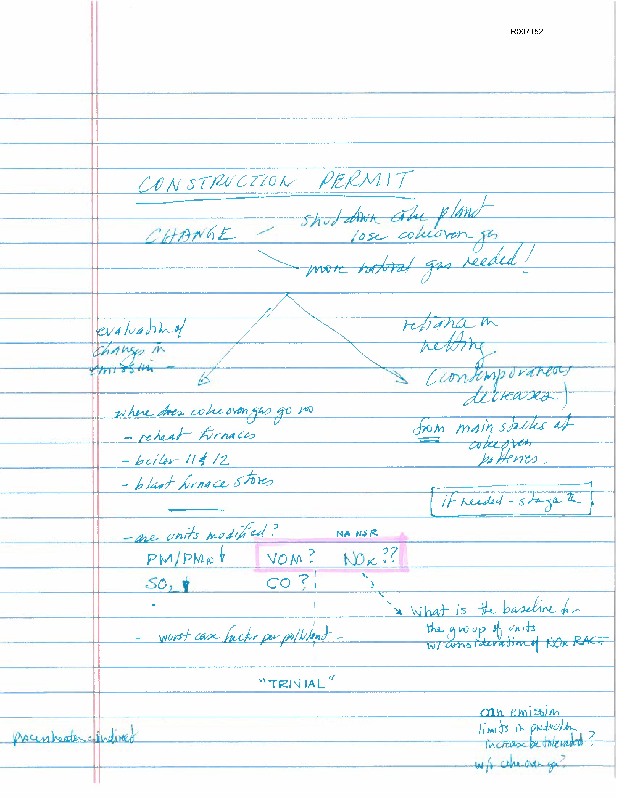 R007152
CONSTRUCTION PERMIT
CHANGE - shut down coke plant
lose coke oven gas
more natural gas needed!
evaluation of
changes in
emission -
reliance on
netting
(contemporaneous
decreases)
from main stacks at
coke oven
batteries.
where does coke oven gas go
- reheat furnaces
- boiler 11 & 12
- blast furnace stoves
if needed - stage 2
- are units modified?
NA NSR
PM/PM
VOM?
NOx??
SO2
CO?
What is the baseline for
the group of units
w/ consideration of NOx
- worst case factor per pollutant -
"TRIVIAL"
can emission
limits in production
increase be tolerated?
w/o coke oven gas?
indirect